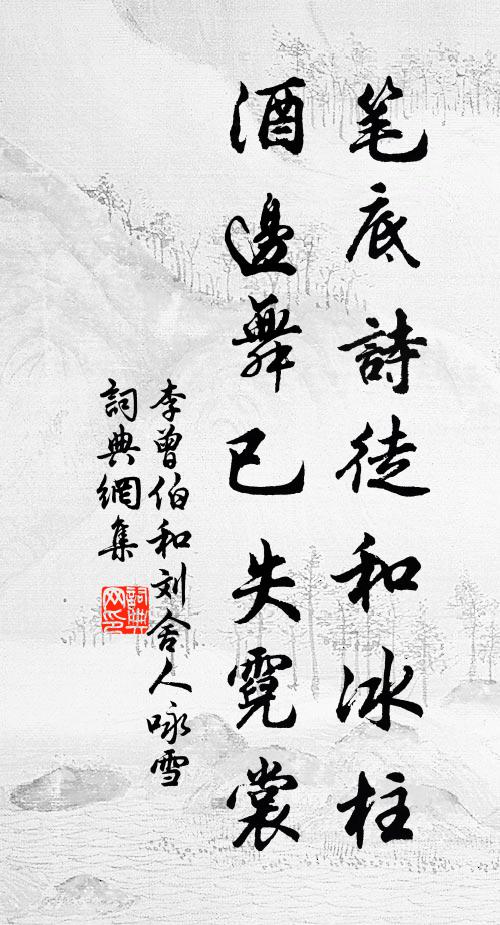 笔底詩徒和冰柱
酒邊舞已失霓裳
李曾伯和刘舍人咏雪
詞典網集
詞典网印